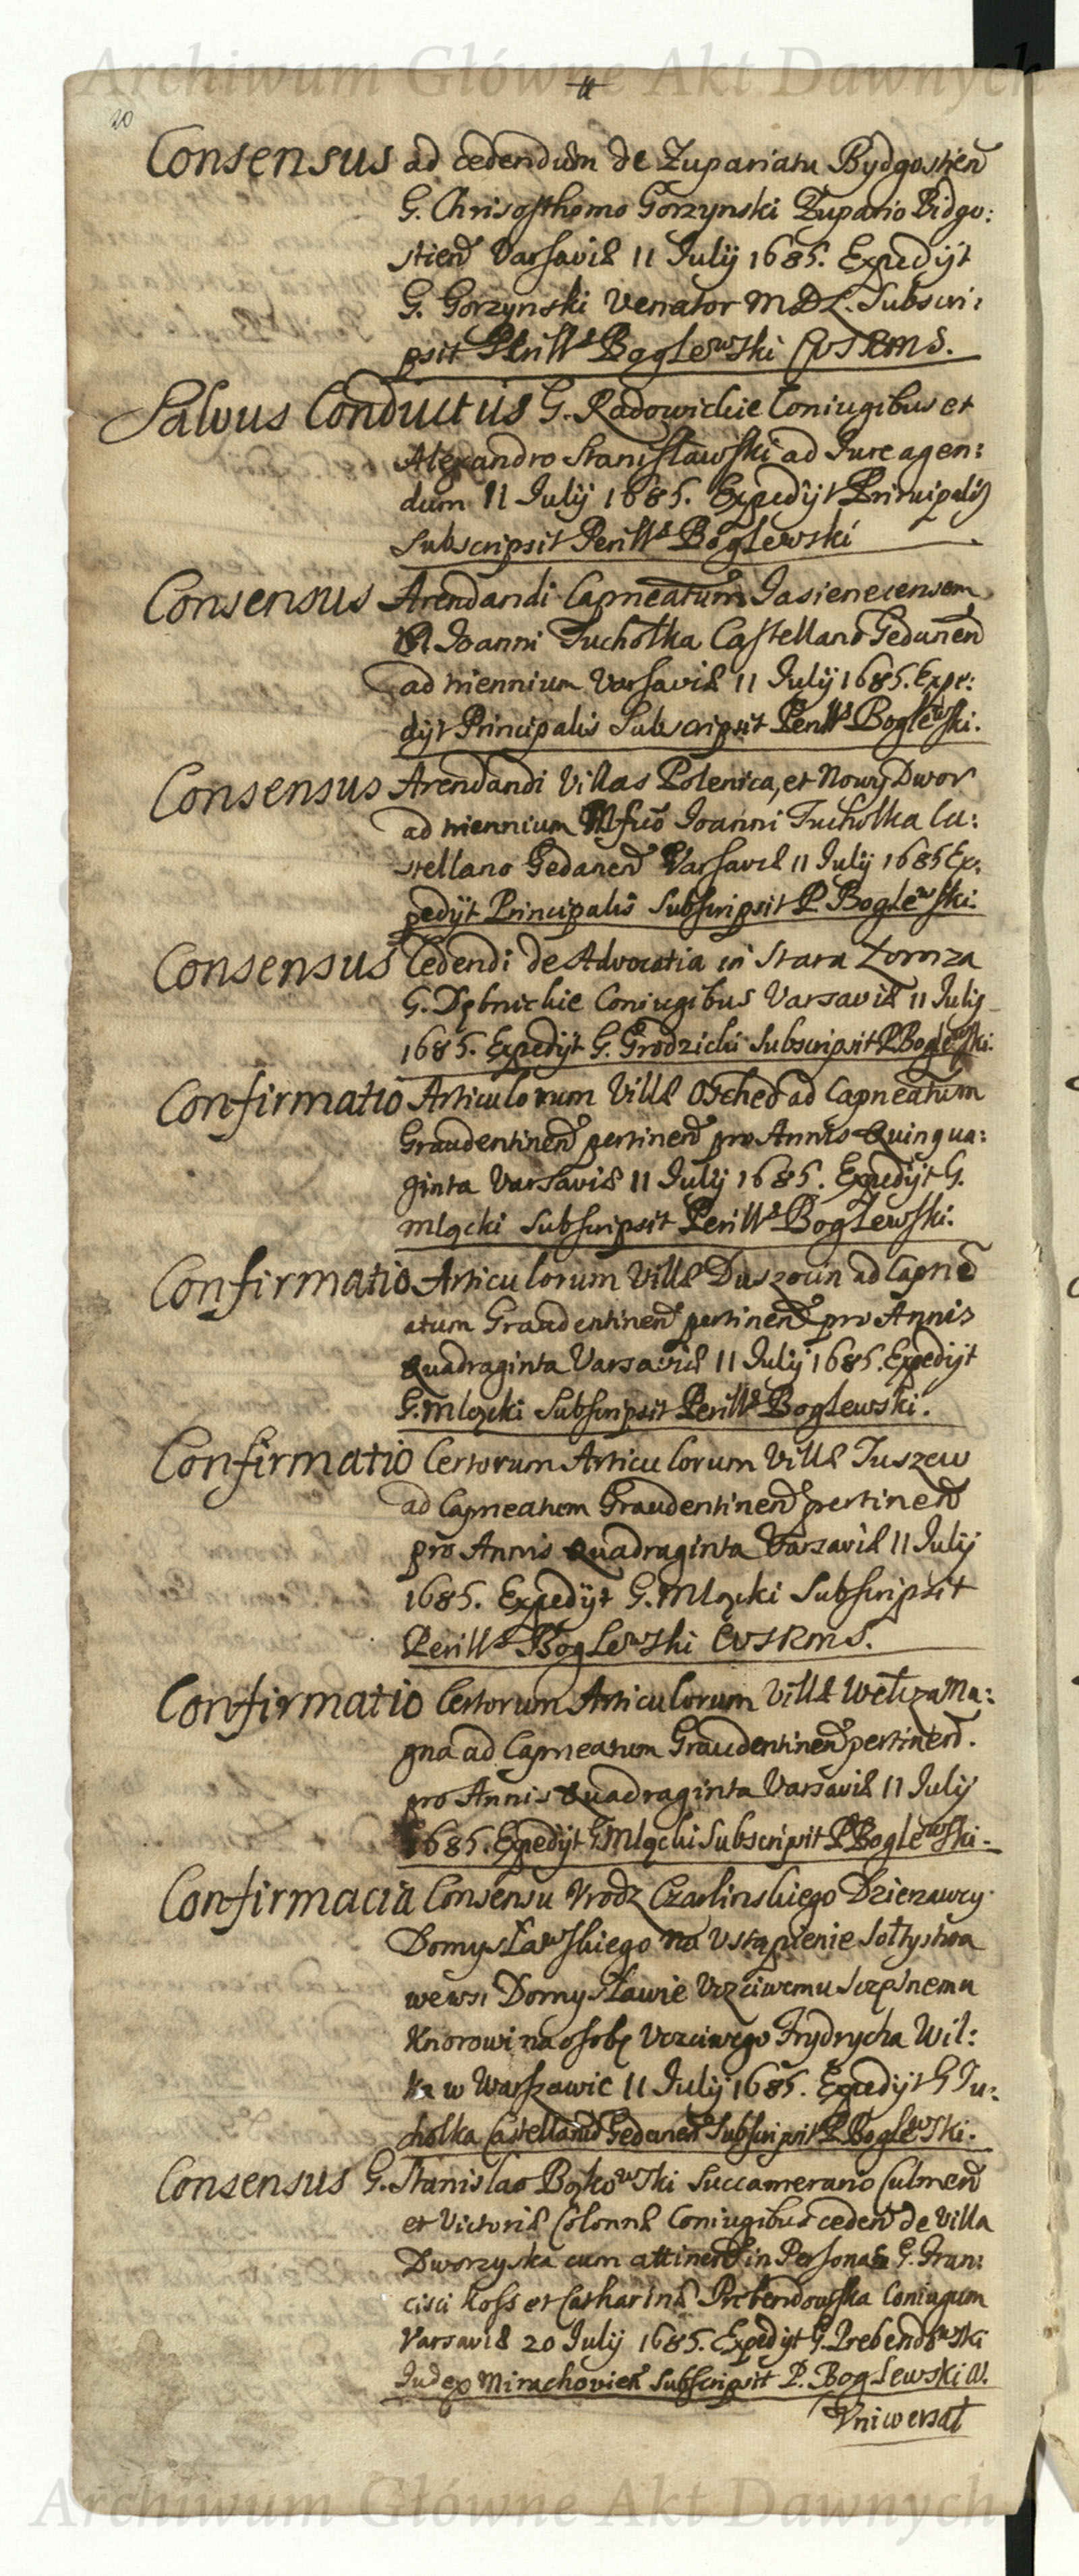 Archiwum Główne Akt Dawnych
20
Consensus ad cedendum de Zupariatu Bydgostien
G. Chrisosthomo Gorzynski Zupario Bidgo:
stien Varsaviæ 11 Julij 1685. Expedijt
G. Gorzynski Venator MDL. Subscri:
psit Perillˢ Boglewski CVSRMS.
Salvus Conductus G. Radowickie Coniugibus et
Alexandro Stanisławski ad Jure agen:
dum 11 Julij 1685. Expedijt Principalis
Subscripsit Perillˢ Boglewski
Consensus Arendandi Capneatum Jasienecensem
M Joanni Tuchołka Castellano Gedanen
ad triennium Varsaviæ 11 Julij 1685. Expe:
dijt Principalis Subscripsit Perillˢ Boglewski.
Consensus Arendandi Villas Polenica, et Nowy Dwor
ad triennium Mfico Joanni Tucholka Ca:
stellano Gedanen Varsaviæ 11 Julij 1685 Ex:
pedijt Principalis Subscripsit P. Boglewski.
Consensus Cedendi de Advocatia in Stara
G. Dębnickie Coniugibus Varsaviæ 11 Julij
1685. Expedijt G. Grodzicki Subscripsit P. Boglewski.
Confirmatio Articulorum Villæ ad Capneatum
Graudentinen pertinen pro Annis Quinqua:
ginta Varsaviæ 11 Julij 1685. Expedijt G.
Mlącki Subscripsit Perillˢ Boglewski.
Confirmatio Articulorum Villæ Duszocin ad Capne
atum Graudentinen pertinen pro Annis
Quadraginta Varsaviæ 11 Julij 1685. Expedijt
G. Mlącki Subscripsit Perillˢ Boglewski.
Confirmatio Certorum Articulorum Villæ Tuszew
ad Capneatum Graudentinen pertinen
pro Annis Quadraginta Varsaviæ 11 Julij
1685. Expedijt G. Mlącki Subscripsit
Perillˢ Boglewski CVSRMS.
Confirmatio Certorum Articulorum Villæ Wełcza Ma:
gna ad Capneatum Graudentinen pertinen.
pro Annis Quadraginta Varsaviæ 11 Julij
1685. Expedijt G Mlącki Subscripsit P Boglewski.
Confirmacia Consensu Vrodz Czarlinskiego Dzierzawcy
Domysławskiego na Vstąpienie Sołtystwa
wewsi Domysławie Vczciwemu
Knorowi na osobę Vczciwego Frydrycha Wil:
ka w Warszawie 11 Julij 1685. Expedijt G Tu:
cholka Castellanus Gedanen Subscripsit P Boglewski.
Consensus G. Stanislao Bąkowski Succamerario Culmen
et Victoriæ Colonnæ Coniugibus ceden de Villa
Dworzyska cum attinen in Personas G. Fran:
cisci Koss et Catharinæ Prebendowska Coniugum
Varsaviæ 20 Julij 1685. Expedijt G. Prebendowski
Judex Mirachovien Subscripsit P. Boglewski
Vniwersał
Archiwum Główne Akt Dawnych